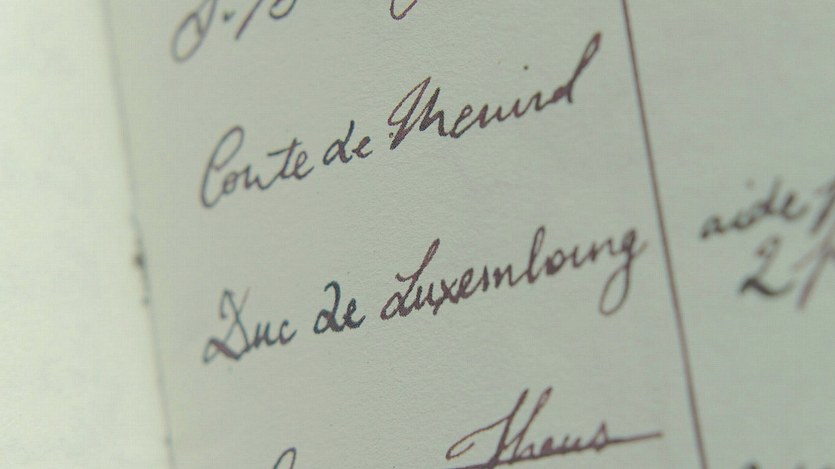 Conte de Menird
Duc de Luxembourg
aide
2
Thous